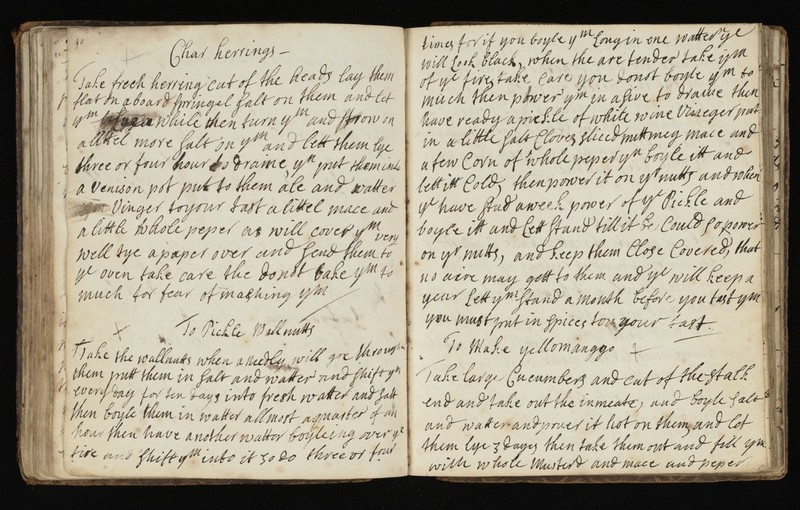 Char herrings -
Take fresh herring cut of the heads lay them
flat on a board springel salt on them and let
ym while then turn ym and strow on
a littel more salt on ym and lett them lye
three or four hour to draine yn put them into
a venison pot put to them ale and watter
Vinger to your tast a littel mace and
a little whole peper as will cover ym very
well tye a paper over and send them to
ye oven take care the donst bake ym to
much for fear of mashing ym
To Pickle Wallnutts
Take the wallnutts when a needly will goe through
them putt them in salt and watter and shift ym
every day for ten days into fresh watter and salt
then boyle them in watter allmost a quarter of an
hour then have another wattor boyleing over ye
fire and shift ym into it so do three or four
times for if you boyle ym Long in one watter ye
will Look black, when the are tender take ym
of ye fire, take care you donst boyle ym to
much then power ym in a sive to draine then
have ready a pickle of white wine Vineger put
in a little salt Cloves sliced nuttmeg mace and
a few Corn of whole peper yn boyle itt and
lett itt Cold, then power it on yr nutts and when
ye have stud a week power of ye Pickle and
boyle itt and Lett stand till it be Could, so power
on yr nutts, and keep them Close Covered, that
no aire may gett to them and ye will keep a
year Lett ym stand a month before you tast ym
you must put in spices to your tast.
To Make yellomanggo
Take large Cucumbers and cut of the stalk
end and take out the inmeate, and boyle salt
and watter and power it hot on them, and let
them lye 3 dayes then take them out and fill ym
with whole Musterd and mace and peper